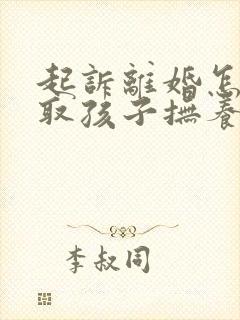 起訴離婚怎
取孩子撫養
李叔同